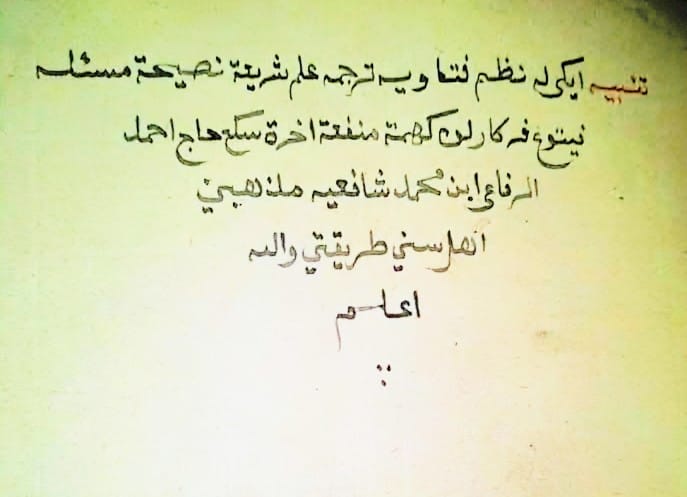 تنبيه ايكي له نظم فتاويه ترجمه علم شريعة نصيحة مسئله
نيتوع فركارلن كهمة منفعة اخرة سكع حاج احمد
الرفاعي ابن محمد شافعيه مذهبي
اهل سني طريقتي والله
اعلم